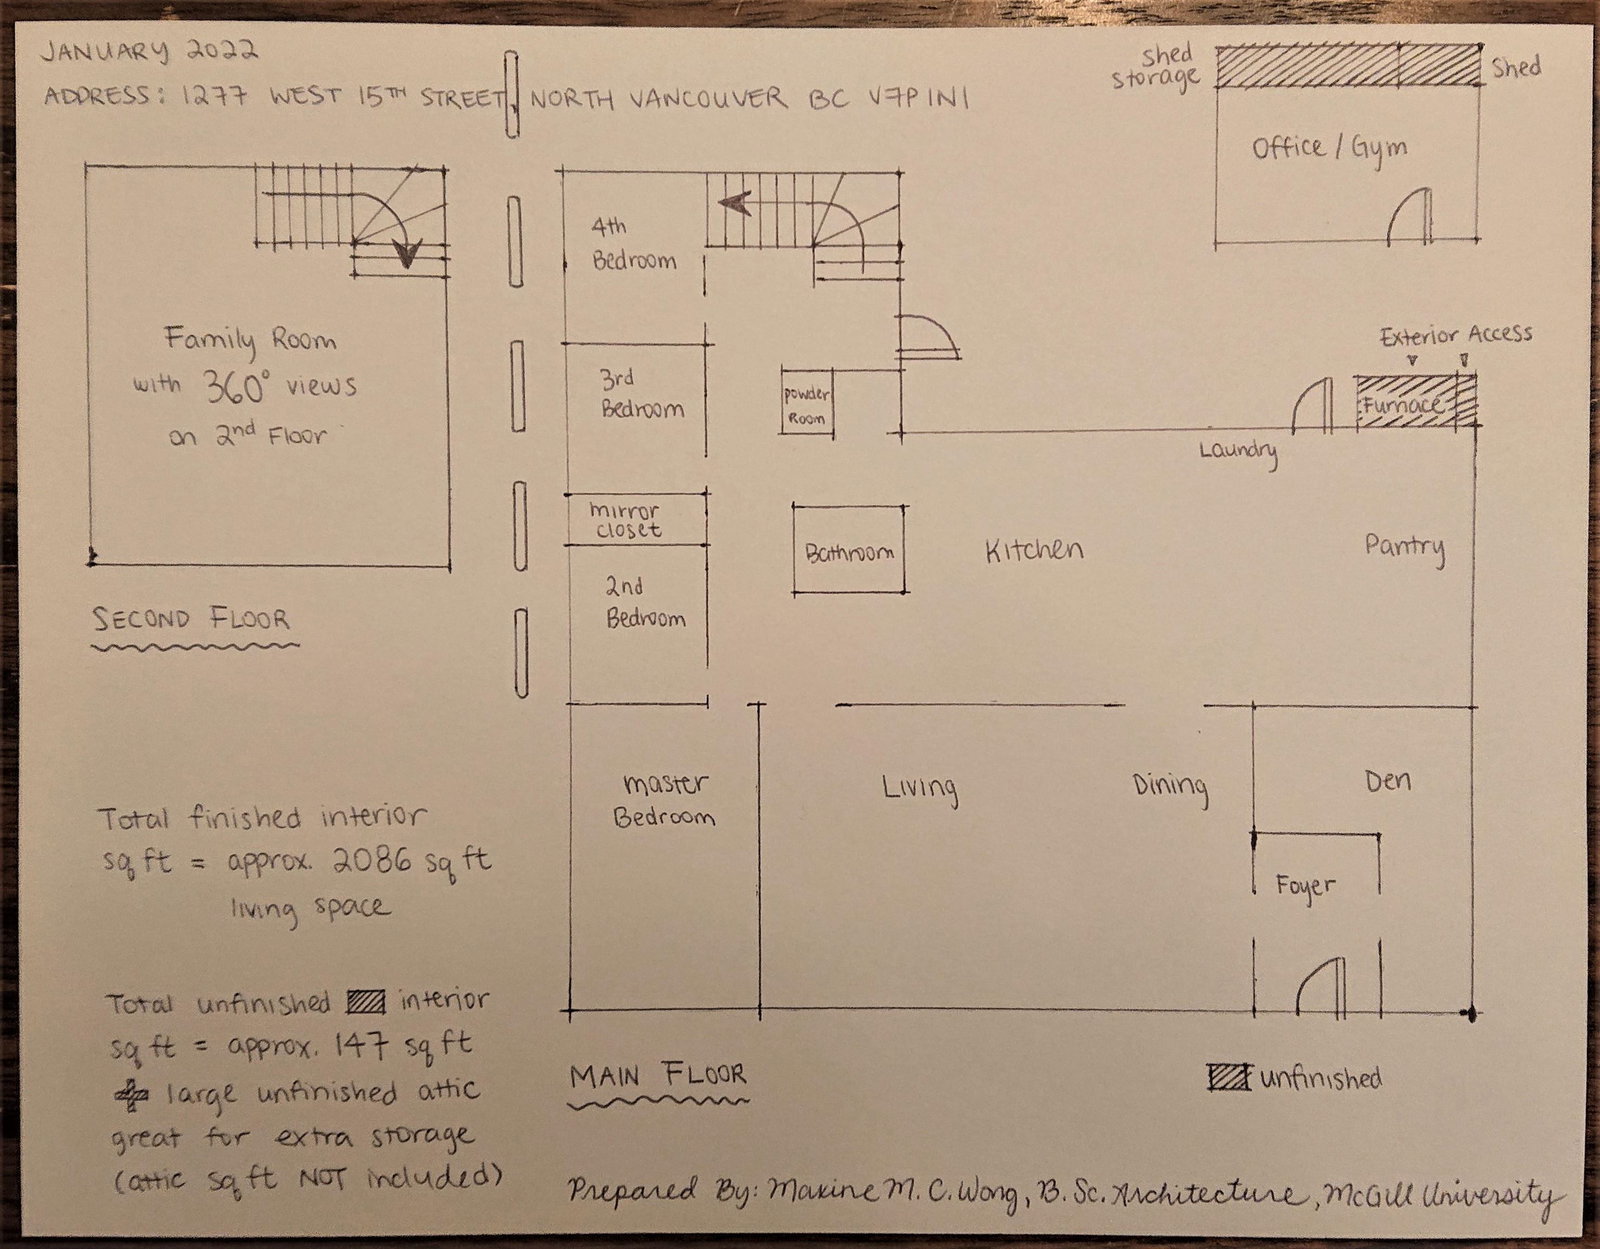 JANUARY 2022
ADDRESS: 1277 WEST 15TH STREET, NORTH VANCOUVER BC V7P 1N1
Shed
Storage
Shed
Office / Gym
4th
Bedroom
Family Room
with 360° views
on 2nd Floor
Exterior Access
3rd
Bedroom
powder
Room
Furnace
Laundry
mirror
closet
Bathroom
Kitchen
Pantry
2nd
Bedroom
SECOND FLOOR
master
Bedroom
Living
Dining
Den
Foyer
Total finished interior
sq ft = approx. 2086 sq ft
living space
Total unfinished interior
sq ft = approx. 147 sq ft
+ large unfinished attic
great for extra storage
(attic sq ft NOT included)
MAIN FLOOR
unfinished
Prepared By: Maxine M. C. Wong, B. Sc. Architecture, McGill University